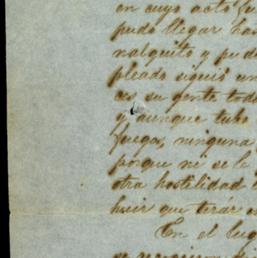 en cuyo acto se
pudo llegar has
nalguito y pud
pleado siguió un
ces su gente tod
y aunque tubo
fuego, ninguna
porque ni se le
otra hostilidad
huir que tirár
En el lug